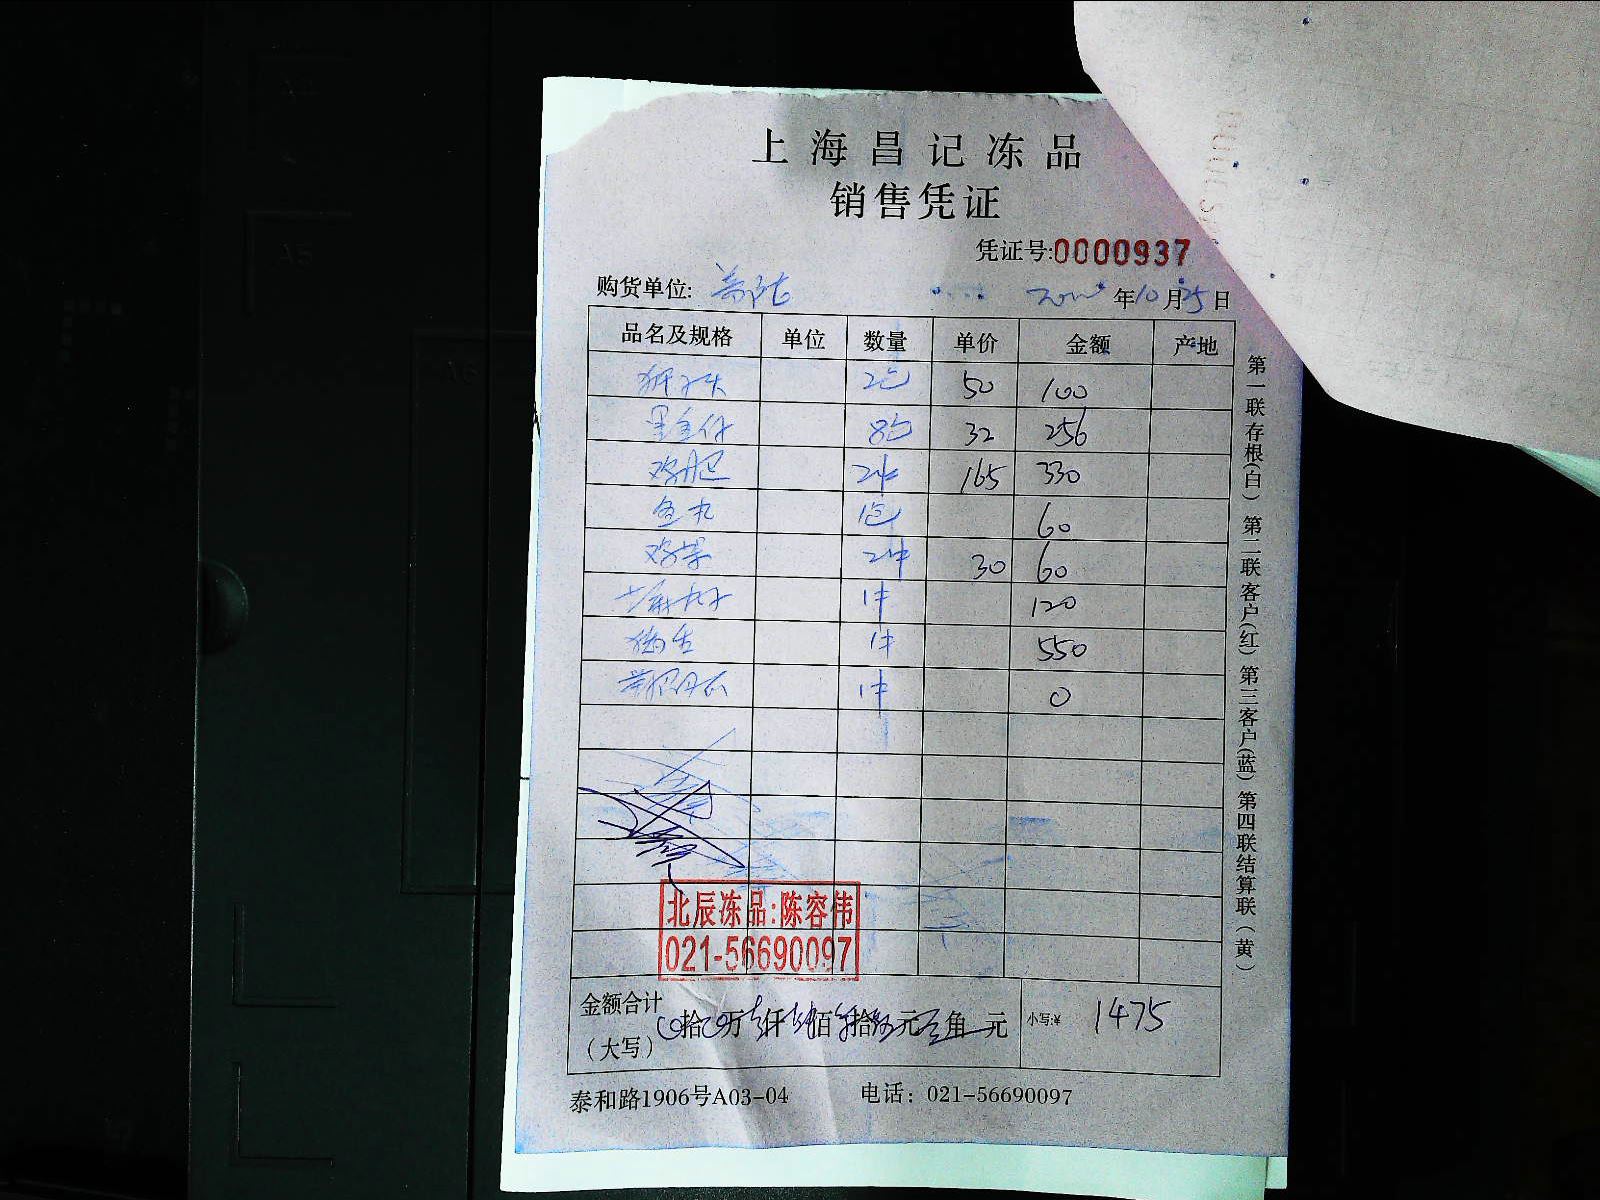 上海昌记冻品
销售凭证
凭证号:0000937
购货单位:
年10月25日
品名及规格 单位 数量 单价 金额 产地
狮子头 2包 50 100
墨鱼仔 8包 32 256
鸡肫 2件 165 330
鱼丸 1包 60
鸡 2件 30 60
丸子 1件 120
猪舌 1件 550
1件 0
北辰冻品:陈容伟
021-56690097
金额合计
(大写) 拾 万 仟 佰 拾 元 角 元 小写:¥ 1475
泰和路1906号A03-04 电话: 021-56690097
第一联存根(白) 第二联客户(红) 第三客户(蓝) 第四联结算联(黄)
A5
A6